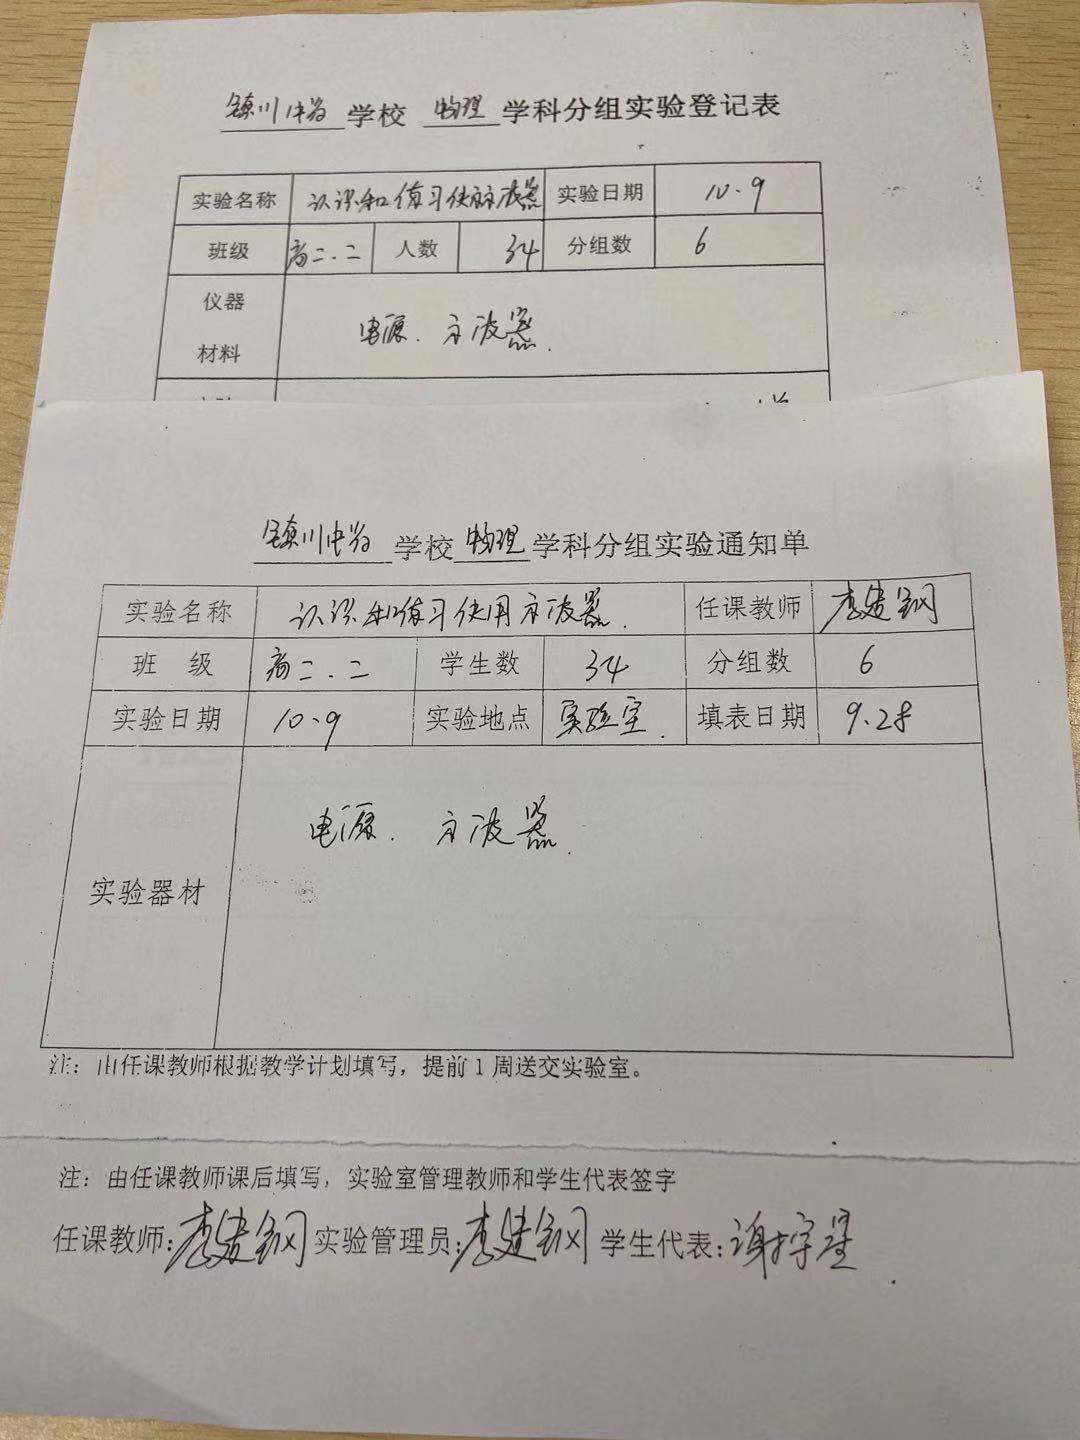 镇川中学 学校 物理 学科分组实验登记表
实验名称 认识和练习使用示波器 实验日期 10.9
班级 高二.二 人数 34 分组数 6
仪器
材料 电源. 示波器.
镇川中学 学校 物理 学科分组实验通知单
实验名称 认识和练习使用示波器. 任课教师 李建钢
班 级 高二.二 学生数 34 分组数 6
实验日期 10.9 实验地点 实验室. 填表日期 9.28
实验器材 电源. 示波器.
注：由任课教师根据教学计划填写，提前1周送交实验室。
注：由任课教师课后填写，实验室管理教师和学生代表签字
任课教师:李建钢 实验管理员:李建钢 学生代表:谢宇星